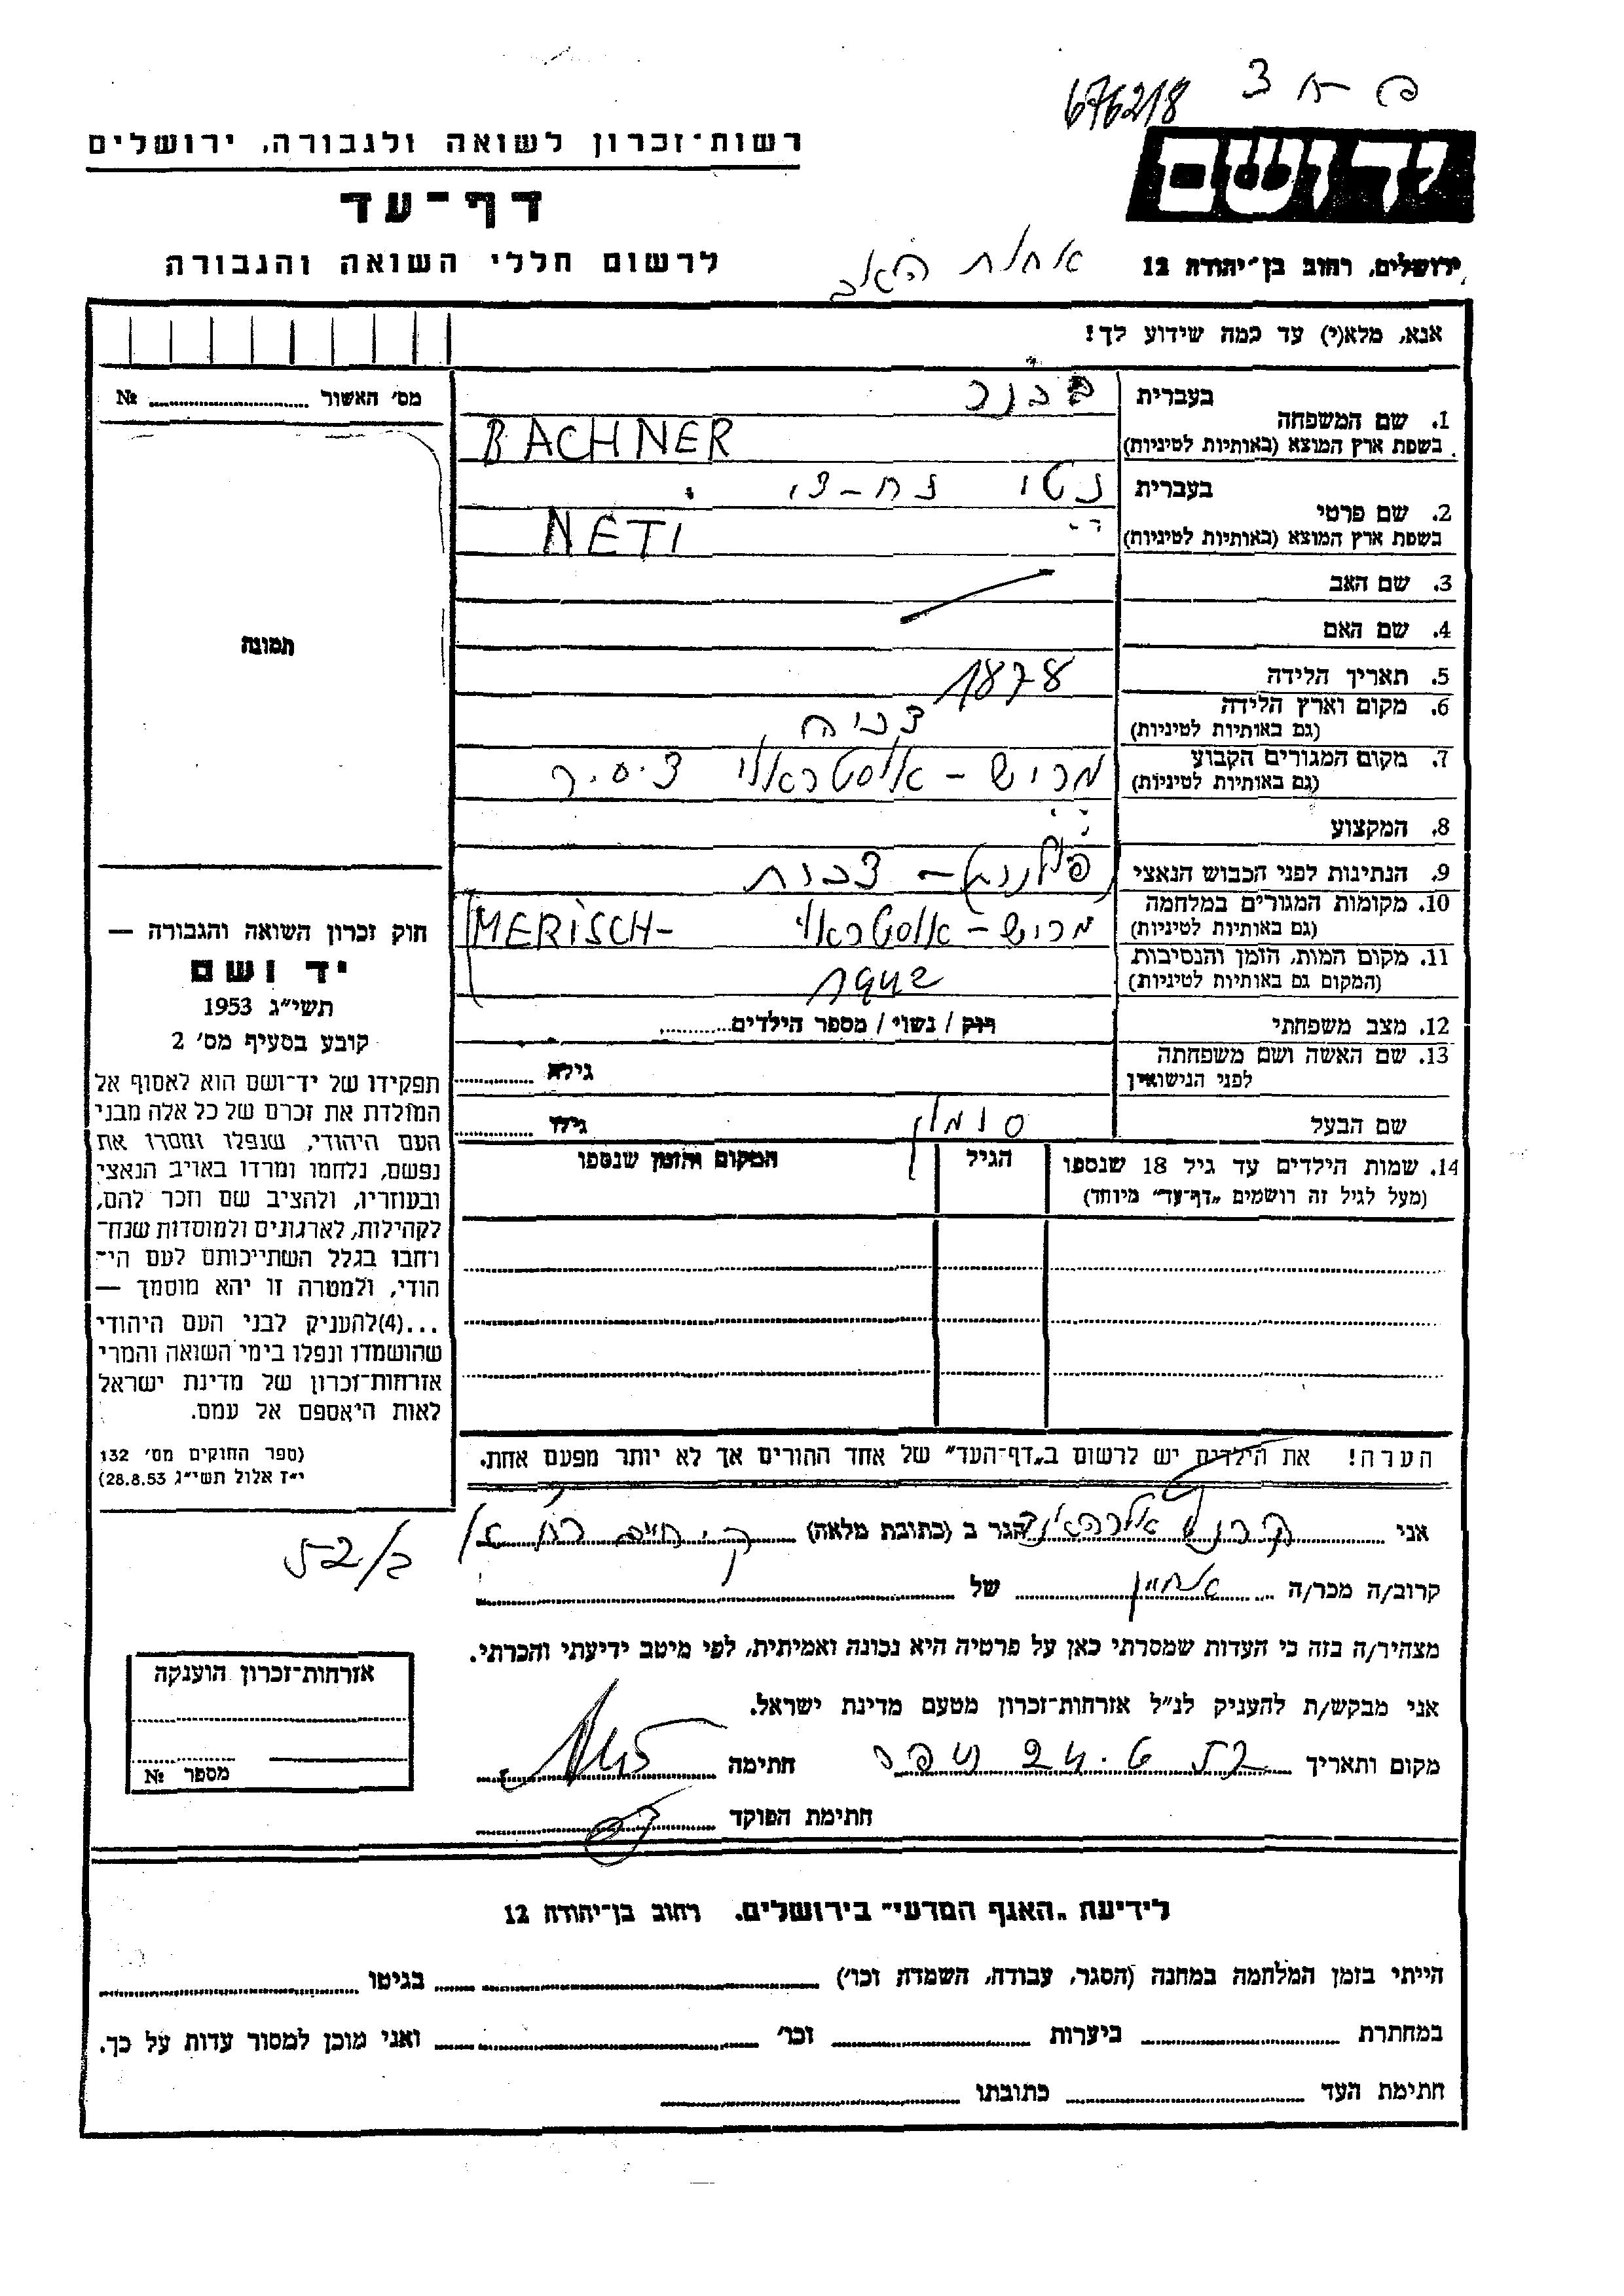 676218
רשות־זכרון לשואה ולגבורה, ירושלים
ידושם
דף־עד
לרשום חללי השואה והגבורה
ירושלים, רחוב בן־יהודה 12
אנא, מלא(י) עד כמה שידוע לך!
מס' האשור № ..........
בעברית
1. שם המשפחה
בכנר
בשפת ארץ המוצא (באותיות לטיניות)
BACHNER
בעברית
נטי
2. שם פרטי
בשפת ארץ המוצא (באותיות לטיניות)
NETI
3. שם האב
4. שם האם
תמונה
5. תאריך הלידה
1878
6. מקום וארץ הלידה
(גם באותיות לטיניות)
7. מקום המגורים הקבוע
(גם באותיות לטיניות)
מריש - אוסטראוי צ.ס.ר
8. המקצוע
9. הנתינות לפני הכבוש הנאצי
10. מקומות המגורים במלחמה
(גם באותיות לטיניות)
מריש - אוסטראוי MERISCH-
11. מקום המות, הזמן והנסיבות
(המקום גם באותיות לטיניות)
1942
12. מצב משפחתי
רוק / נשוי / מספר הילדים..........
13. שם האשה ושם משפחתה
לפני הנישואין
גילה ..........
שם הבעל
גילו ..........
14. שמות הילדים עד גיל 18 שנספו
(מעל לגיל זה רושמים "דף־עד" מיוחד)
הגיל
המקום והזמן שנספו
חוק זכרון השואה והגבורה —
יד ושם
תשי"ג 1953
קובע בסעיף מס' 2
תפקידו של יד־ושם הוא לאסוף אל
המולדת את זכרם של כל אלה מבני
העם היהודי, שנפלו ומסרו את
נפשם, נלחמו ומרדו באויב הנאצי
ובעוזריו, ולהציב שם וזכר להם,
לקהילות, לארגונים ולמוסדות שנח־
רחבו בגלל השתייכותם לעם הי־
הודי, ולמטרה זו יהא מוסמך —
...(4)להעניק לבני העם היהודי
שהושמדו ונפלו בימי השואה והמרי
אזרחות־זכרון של מדינת ישראל
לאות היאספם אל עמם.
(ספר החוקים מס' 132
י"ז אלול תשי"ג 28.8.53)
הערה! את הילדים יש לרשום ב"דף־העד" של אחד ההורים אך לא יותר מפעם אחת.
אני .......... הגר ב (כתובת מלאה) ..........
קרוב/ה מכר/ה אחיין של ..........
מצהיר/ה בזה כי העדות שמסרתי כאן על פרטיה היא נכונה ואמיתית, לפי מיטב ידיעתי והכרתי.
אני מבקש/ת להעניק לנ"ל אזרחות־זכרון מטעם מדינת ישראל.
מקום ותאריך .......... חתימה ..........
חתימת הפוקד ..........
אזרחות־זכרון הוענקה
מספר №
לידיעת "האגף המדעי" בירושלים, רחוב בן־יהודה 12
הייתי בזמן המלחמה במחנה (הסגר, עבודה, השמדה וכו') .......... בגיטו ..........
במחתרת .......... ביערות .......... וכו' .......... ואני מוכן למסור עדות על כך.
חתימת העד .......... כתובתו ..........